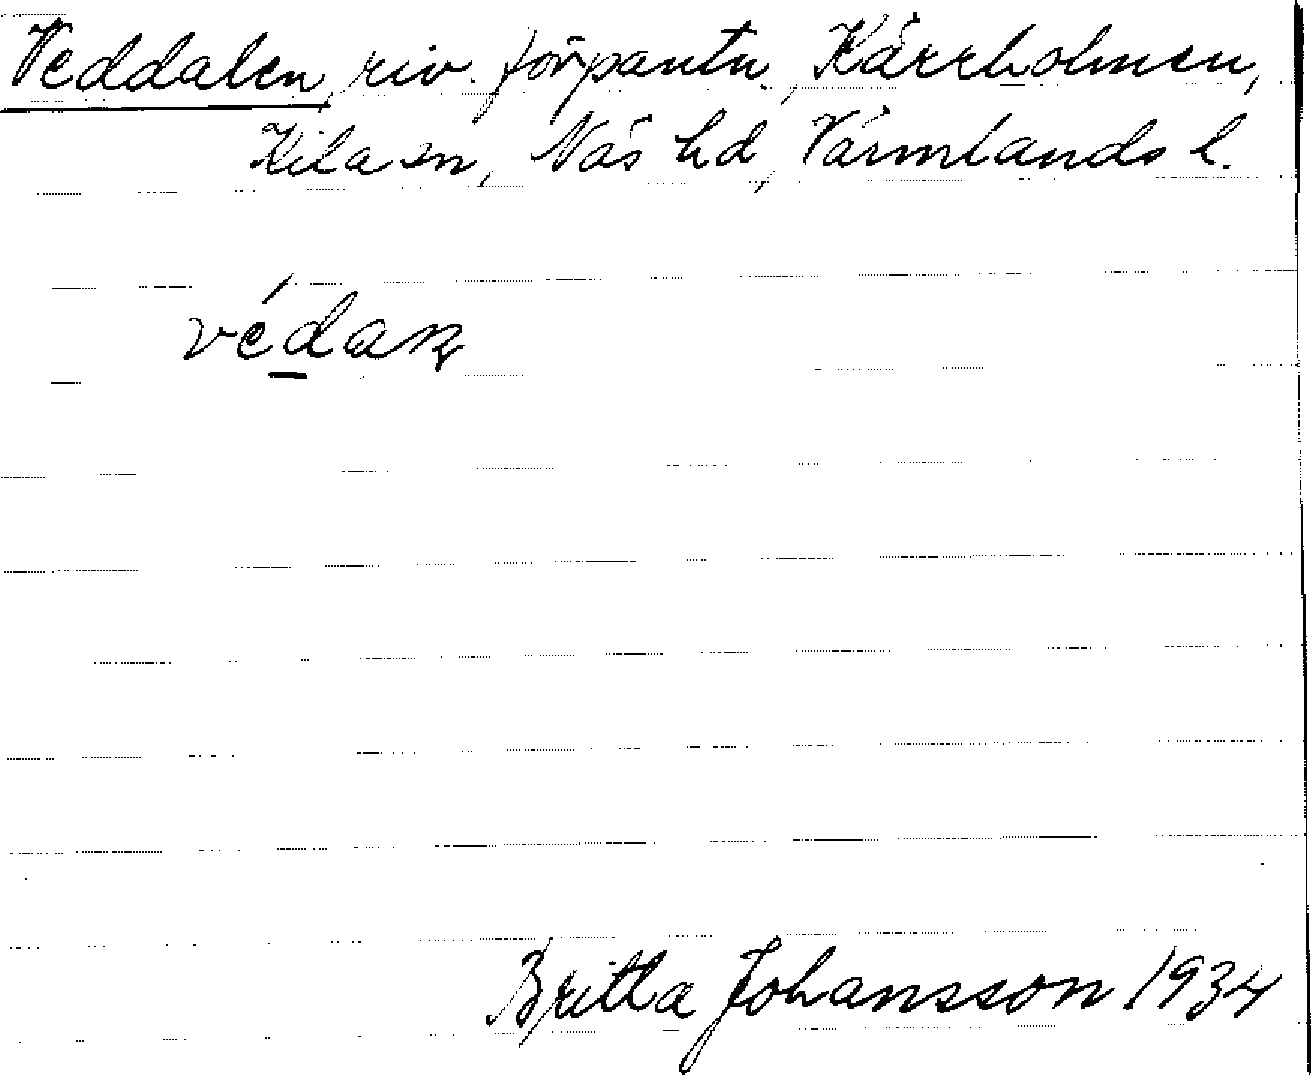 Veddalen, riv. förpantn., Kärrholmen,
Kila sn, Näs hd, Värmlands l.
védaṉ
Britta Johansson 1934